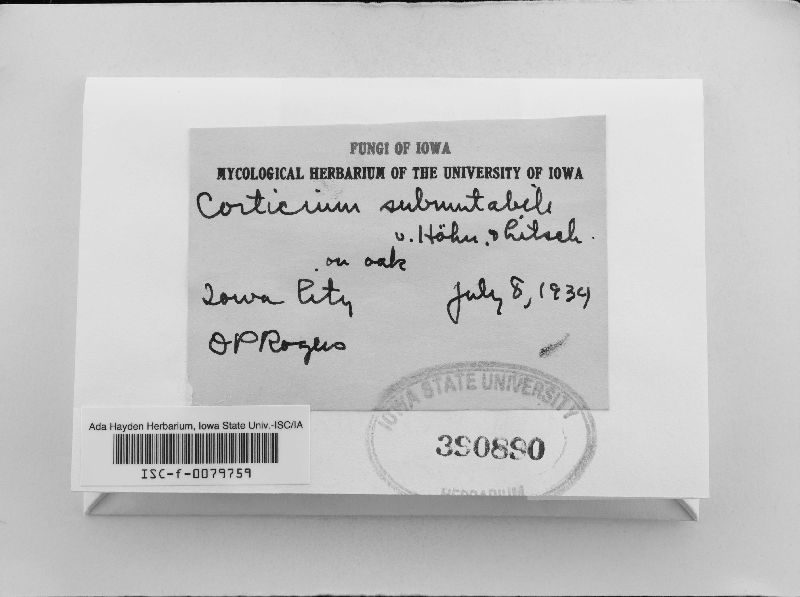 FUNGI OF IOWA
MYCOLOGICAL HERBARIUM OF THE UNIVERSITY OF IOWA
Corticium submutabile
v. Höhn. & Litsch.
on oak
Iowa City July 8, 1934
DPRogers
IOWA STATE UNIVERSITY
390890
HERBARIUM
Ada Hayden Herbarium, Iowa State Univ.-ISC/IA
ISC-f-0079759